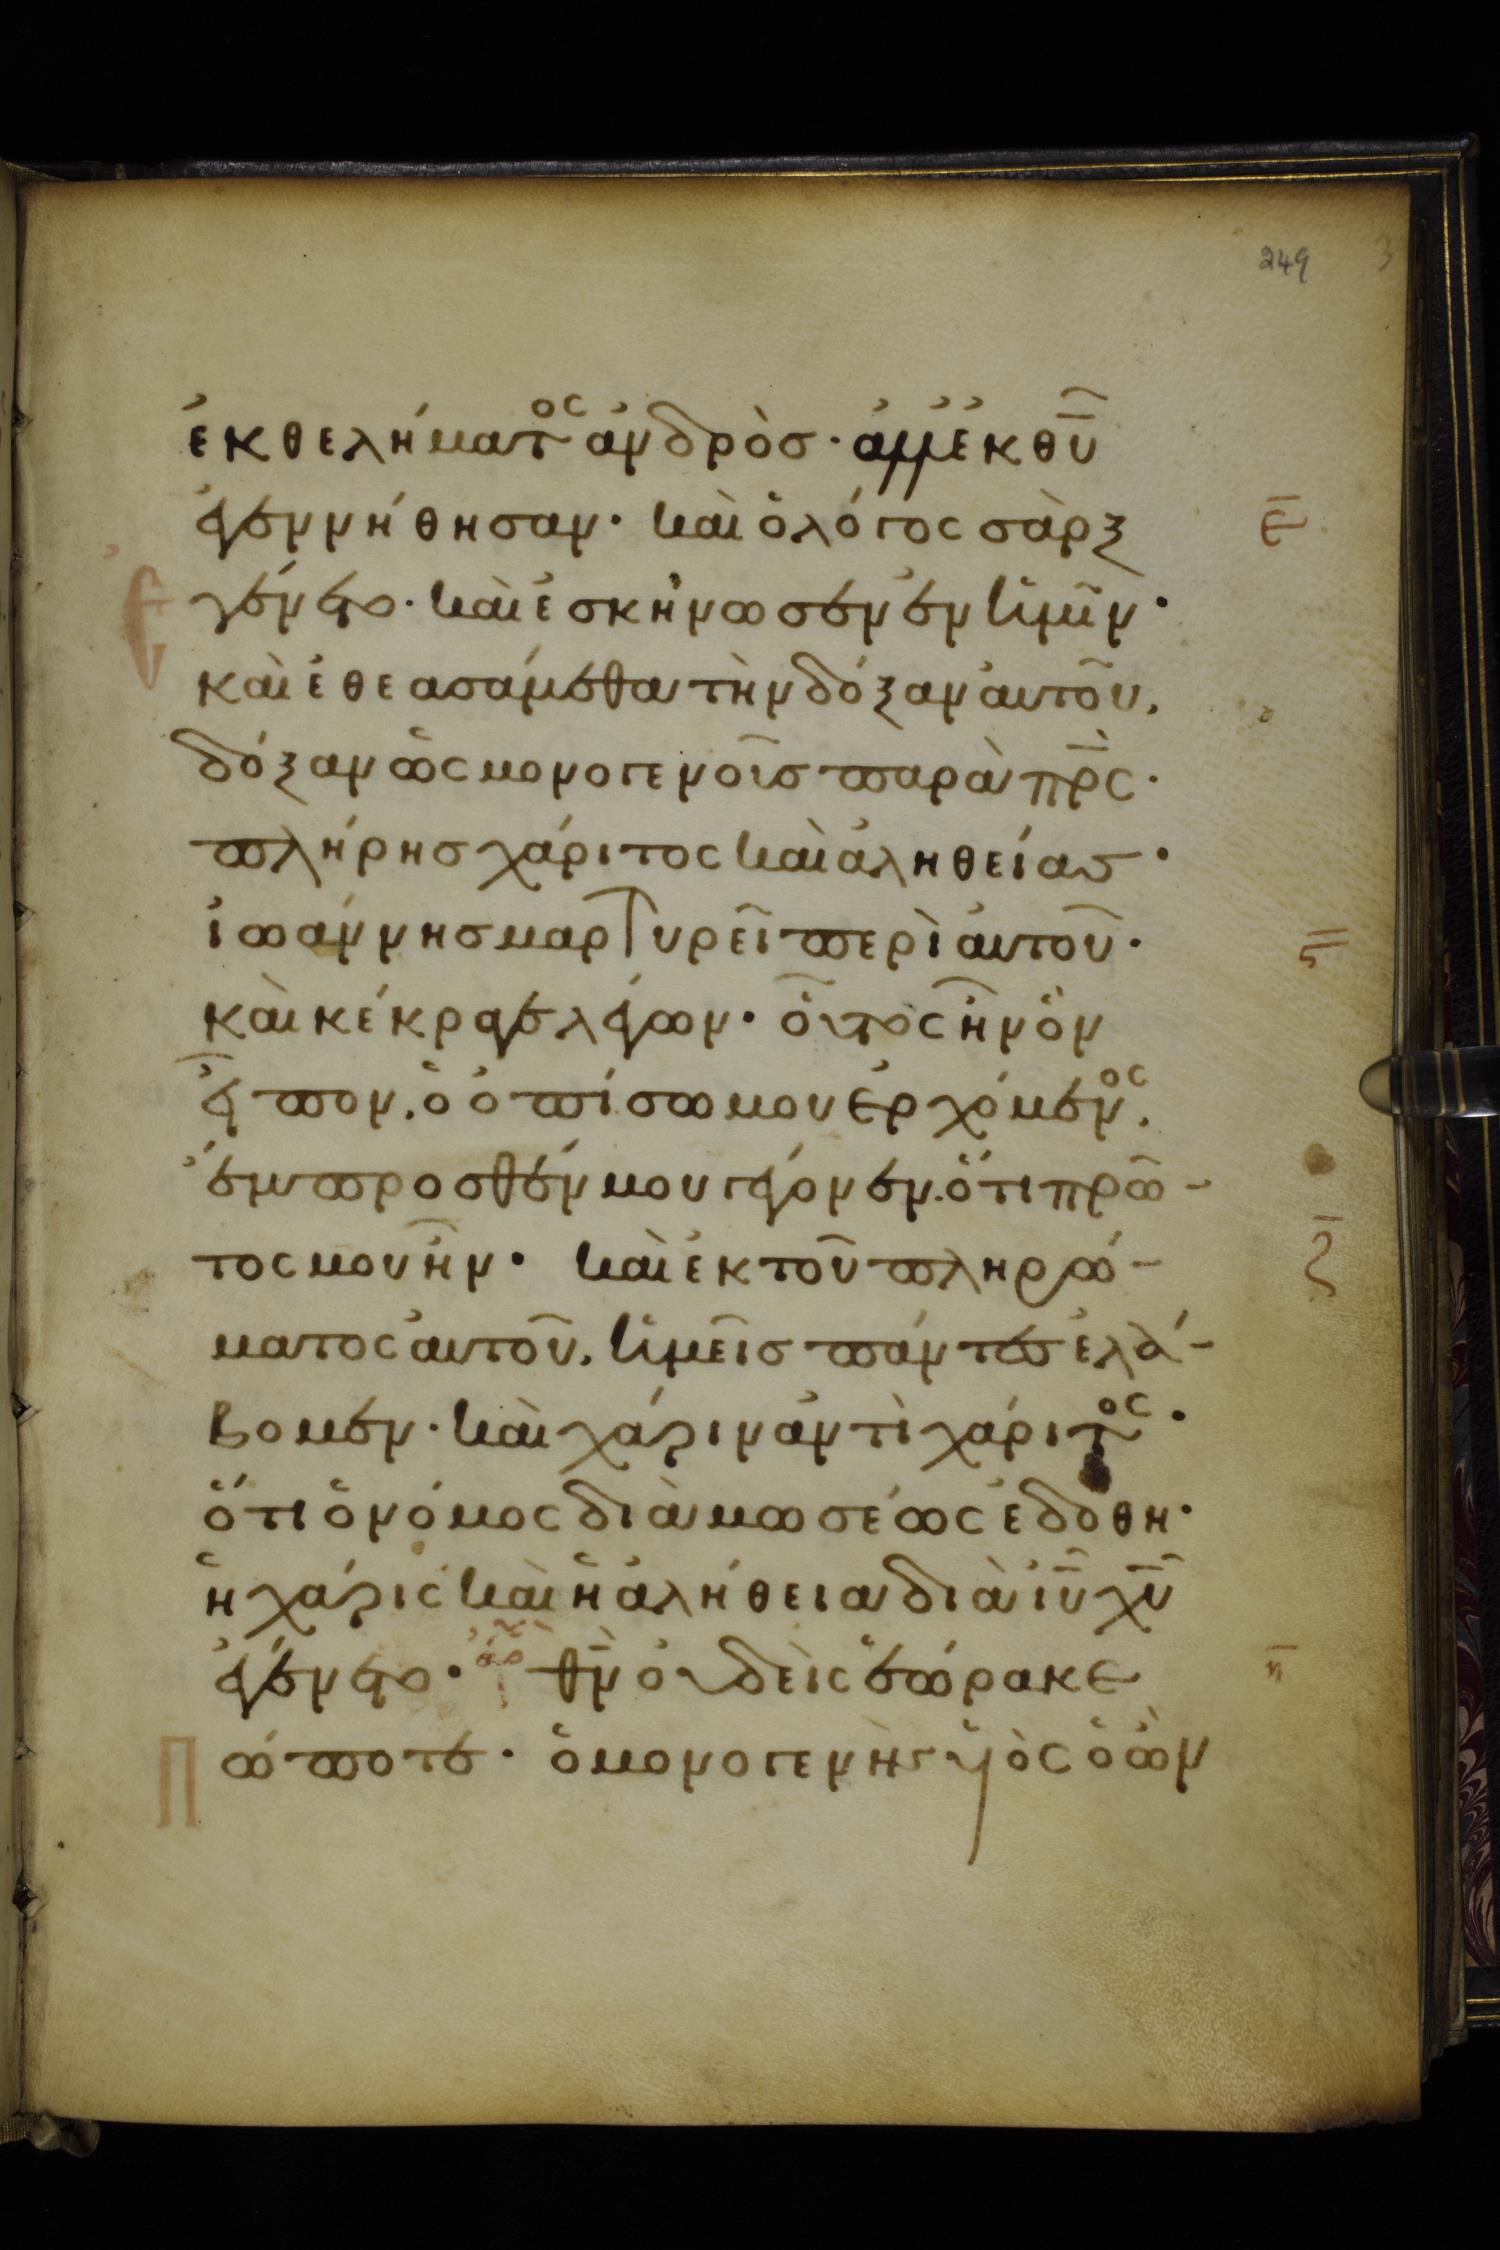 249
ἐκ θελήματος ἀνδρὸσ· ἀλλ' ἐκ θῦ
ἐγεννήθησαν· καὶ ὁ λόγος σὰρξ ε̄
ἐγένετο· καὶ ἐσκήνωσεν ἐν ἡμῖν·
καὶ ἐθεασάμεθα τὴν δόξαν αὐτοῦ,
δόξαν ὡς μονογενοῖσ παρὰ πρ̅ς·
πλήρησ χάριτος καὶ ἀληθείας·
ἰωάννησ μαρτυρεῖ περὶ αὐτοῦ· ς̄
καὶ κέκραγε λέγων· οὗτος ἦν ὃν
εἶπον, ὁ ὀπίσω μου ἐρχόμενος,
ἔμπροσθέν μου γέγονεν. ὅτι πρῶ-
τος μου ἦν· καὶ ἐκ τοῦ πληρώ- ζ̄
ματος αὐτοῦ, ἡμεῖσ πάντες ἐλά-
βομεν· καὶ χάριν ἀντὶ χάριτος·
ὅτι ὁ νόμος διὰ μωσέως ἐδόθη·
ἡ χάρις καὶ ἡ ἀλήθεια διὰ ἰῦ χῦ
ἐγένετο· θν̅ οὐδεὶς ἑώρακε η̄
πώποτε· ὁ μονογενὴς υἱὸς ὁ ὢν